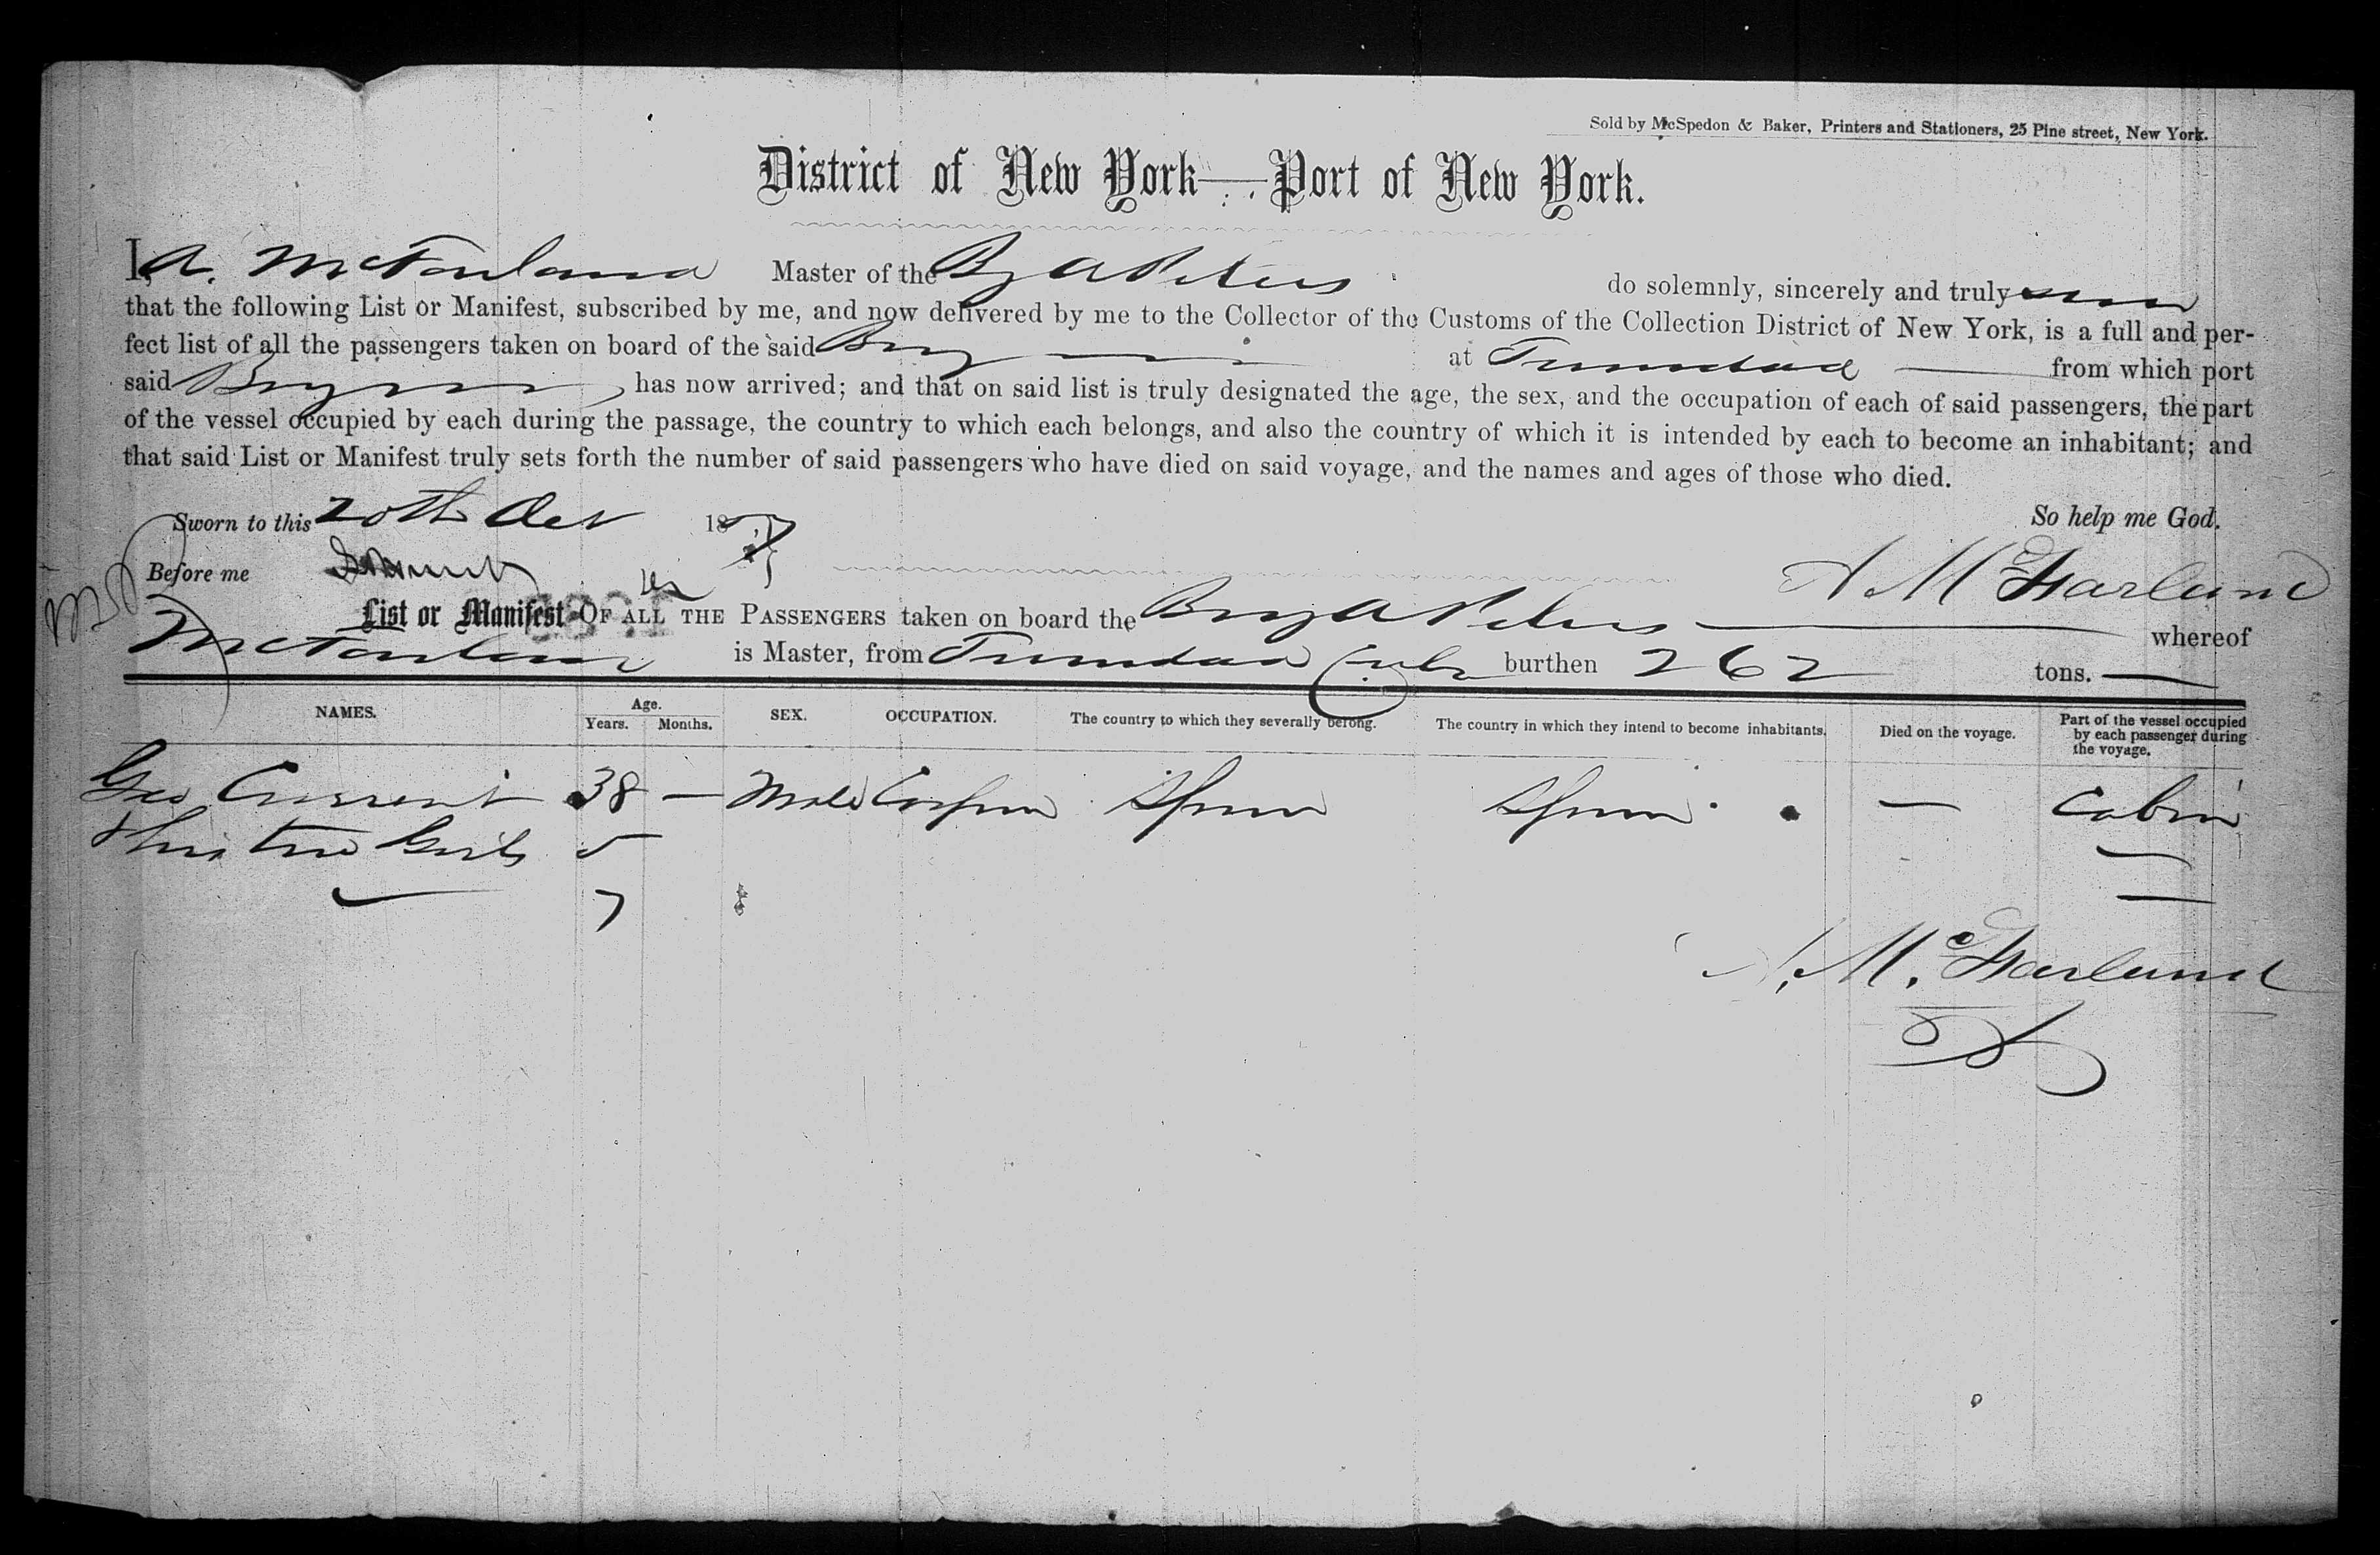 Sold by McSpedon & Baker, Printers and Stationers, 25 Pine street, New York.
District of New York — Port of New York.
I, A. McFarland Master of the Brig A Peters do solemnly, sincerely and truly swear
that the following List or Manifest, subscribed by me, and now delivered by me to the Collector of the Customs of the Collection District of New York, is a full and per-
fect list of all the passengers taken on board of the said Brig at Trinidad from which port
said Brig has now arrived; and that on said list is truly designated the age, the sex, and the occupation of each of said passengers, the part
of the vessel occupied by each during the passage, the country to which each belongs, and also the country of which it is intended by each to become an inhabitant; and
that said List or Manifest truly sets forth the number of said passengers who have died on said voyage, and the names and ages of those who died.
Sworn to this 20th Oct 18 7 So help me God.
Before me
A McFarland
List or Manifest OF ALL THE PASSENGERS taken on board the Brig A Peters whereof
McFarland is Master, from Trinidad Cuba burthen 262 tons.
NAMES. Age. Years. Months. SEX. OCCUPATION. The country to which they severally belong. The country in which they intend to become inhabitants. Died on the voyage. Part of the vessel occupied by each passenger during the voyage.
Geo 38 — Male Spain Spain — Cabin
two Girls 5
7
A. McFarland